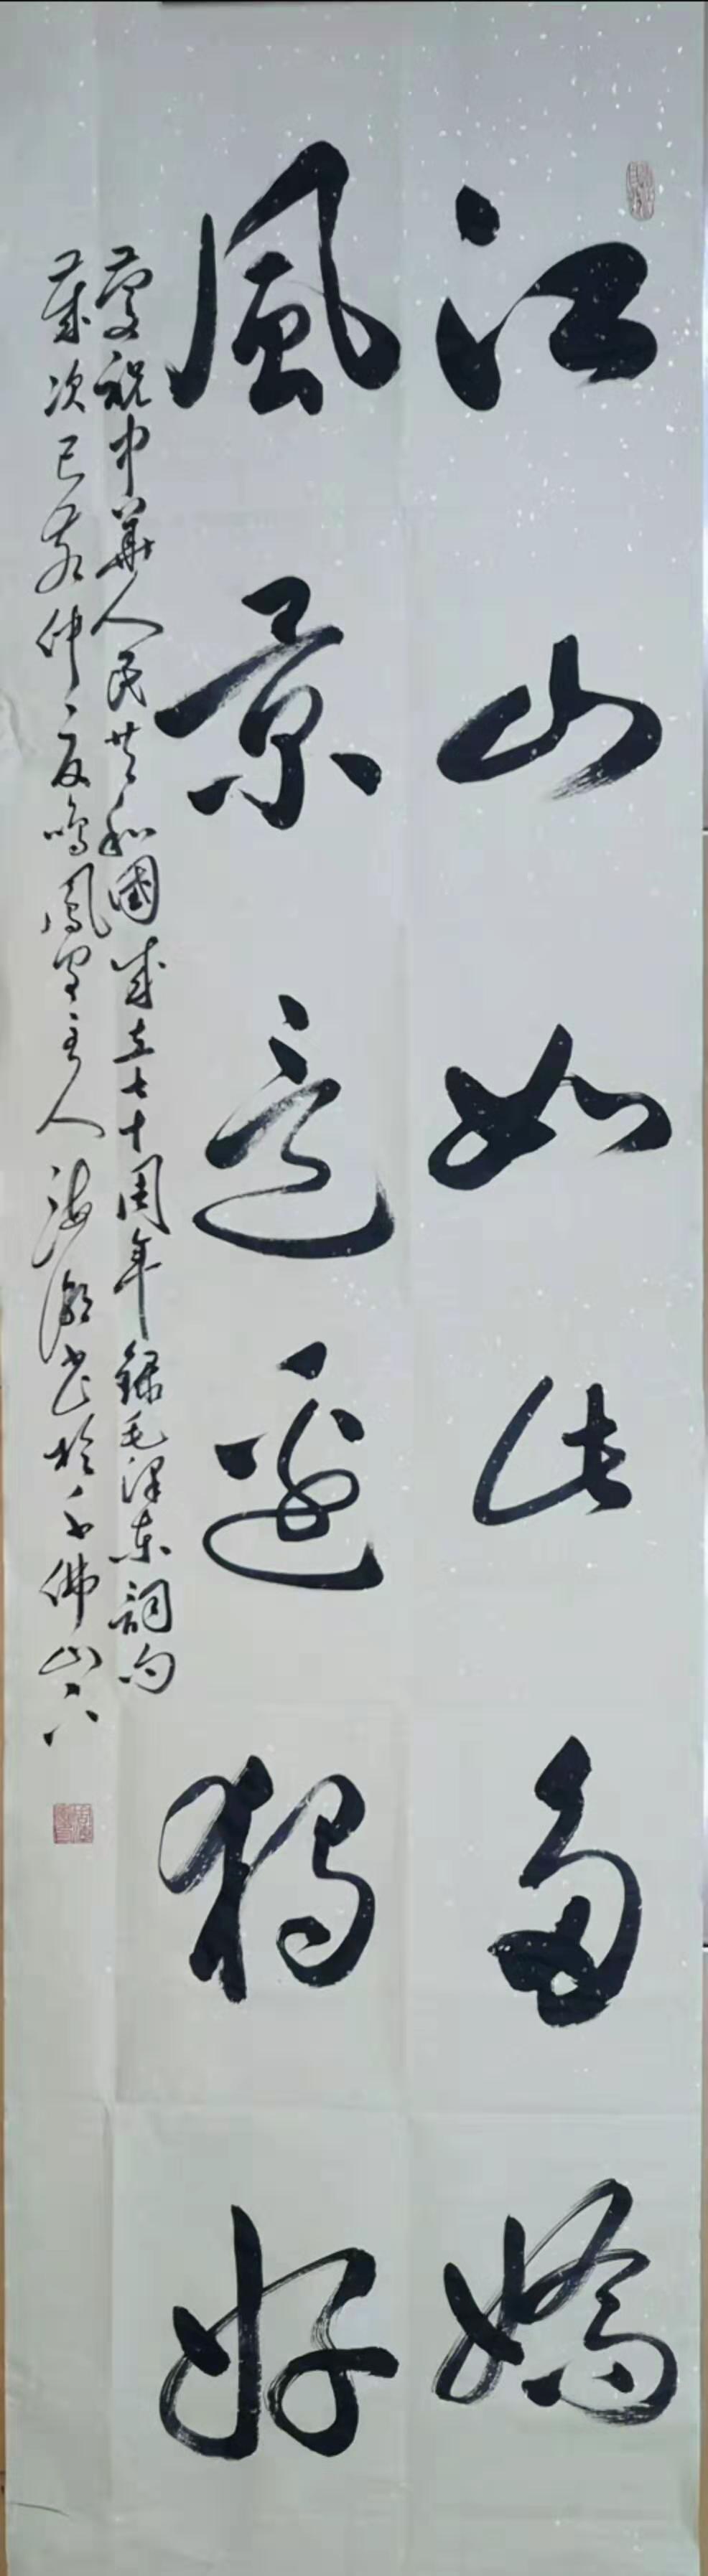 江山如此多嬌
風景這邊獨好
慶祝中華人民共和國成立七十周年錄毛澤東詞句
歲次己亥仲夏鳴鳳堂主人海潮書於千佛山下